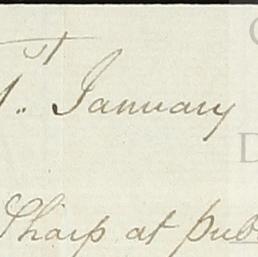 1st January
Sharp at pub